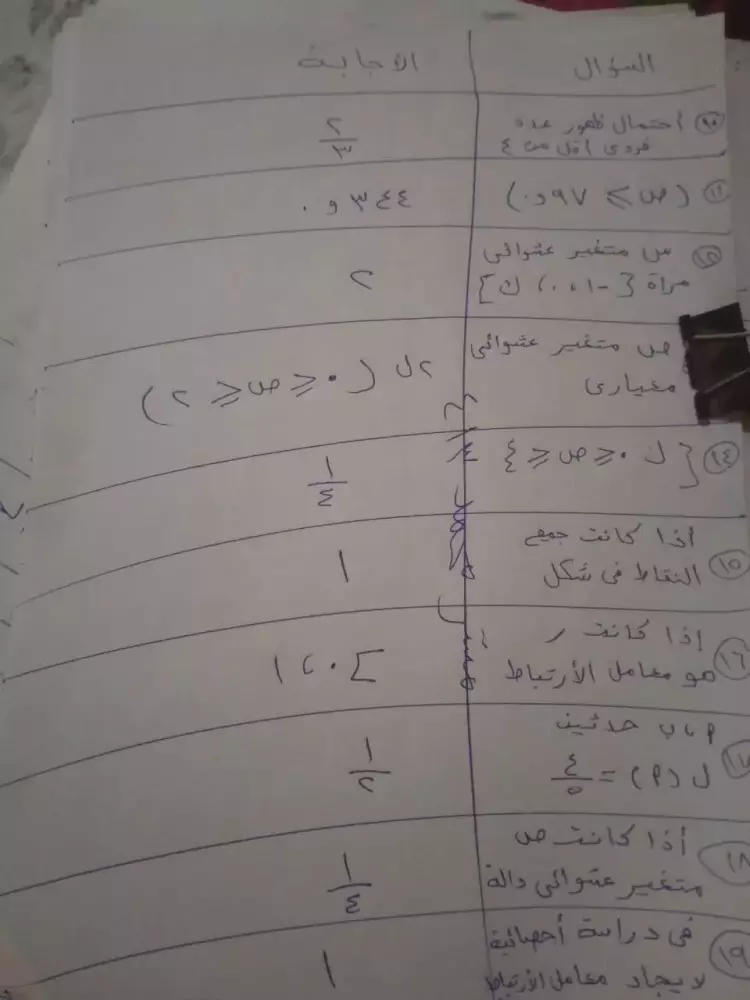 السؤال الاجابة
١٠ احتمال ظهور عدد
فردى اقل من ٤
٢/٣
١١ (ص ⩾ ٩٧و٠)
٣٤٤و٠
س متغير عشوائى
مداة {-١،٠، ك}
٢
ص متغير عشوائى
معيارى
٢ل (٠ ⩽ ص ⩽ ٢)
١٤ { ك ٠ ⩽ ص ⩽ ٤
١/٤
١٥ اذا كانت جميع
النقاط فى شكل
١
١٦ إذا كانت ر
هو معامل الأرتباط
]٠،١
١٧ ٩،ب حدثين
ل (٩) = ٤/٥
١/٢
١٨ أذا كانت ص
متغير عشوائى دالة
١/٤
١٩ فى دراسة أحصائية
لايجاد معامل الأرتباط
١